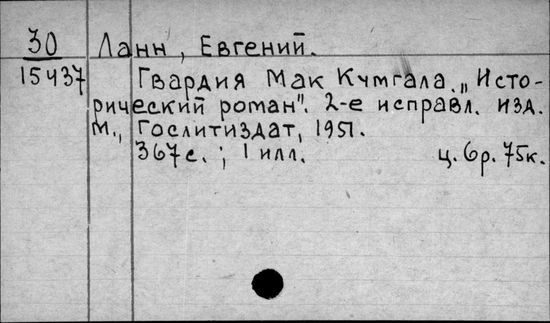 30 Ланн, Евгений.
15437 Гвардия Мак Кумгала. „Исто-
рический роман". 2-е исправл. изд.
М., Гослитиздат, 1951.
367с.; 1 илл. ц. 6р. 75к.